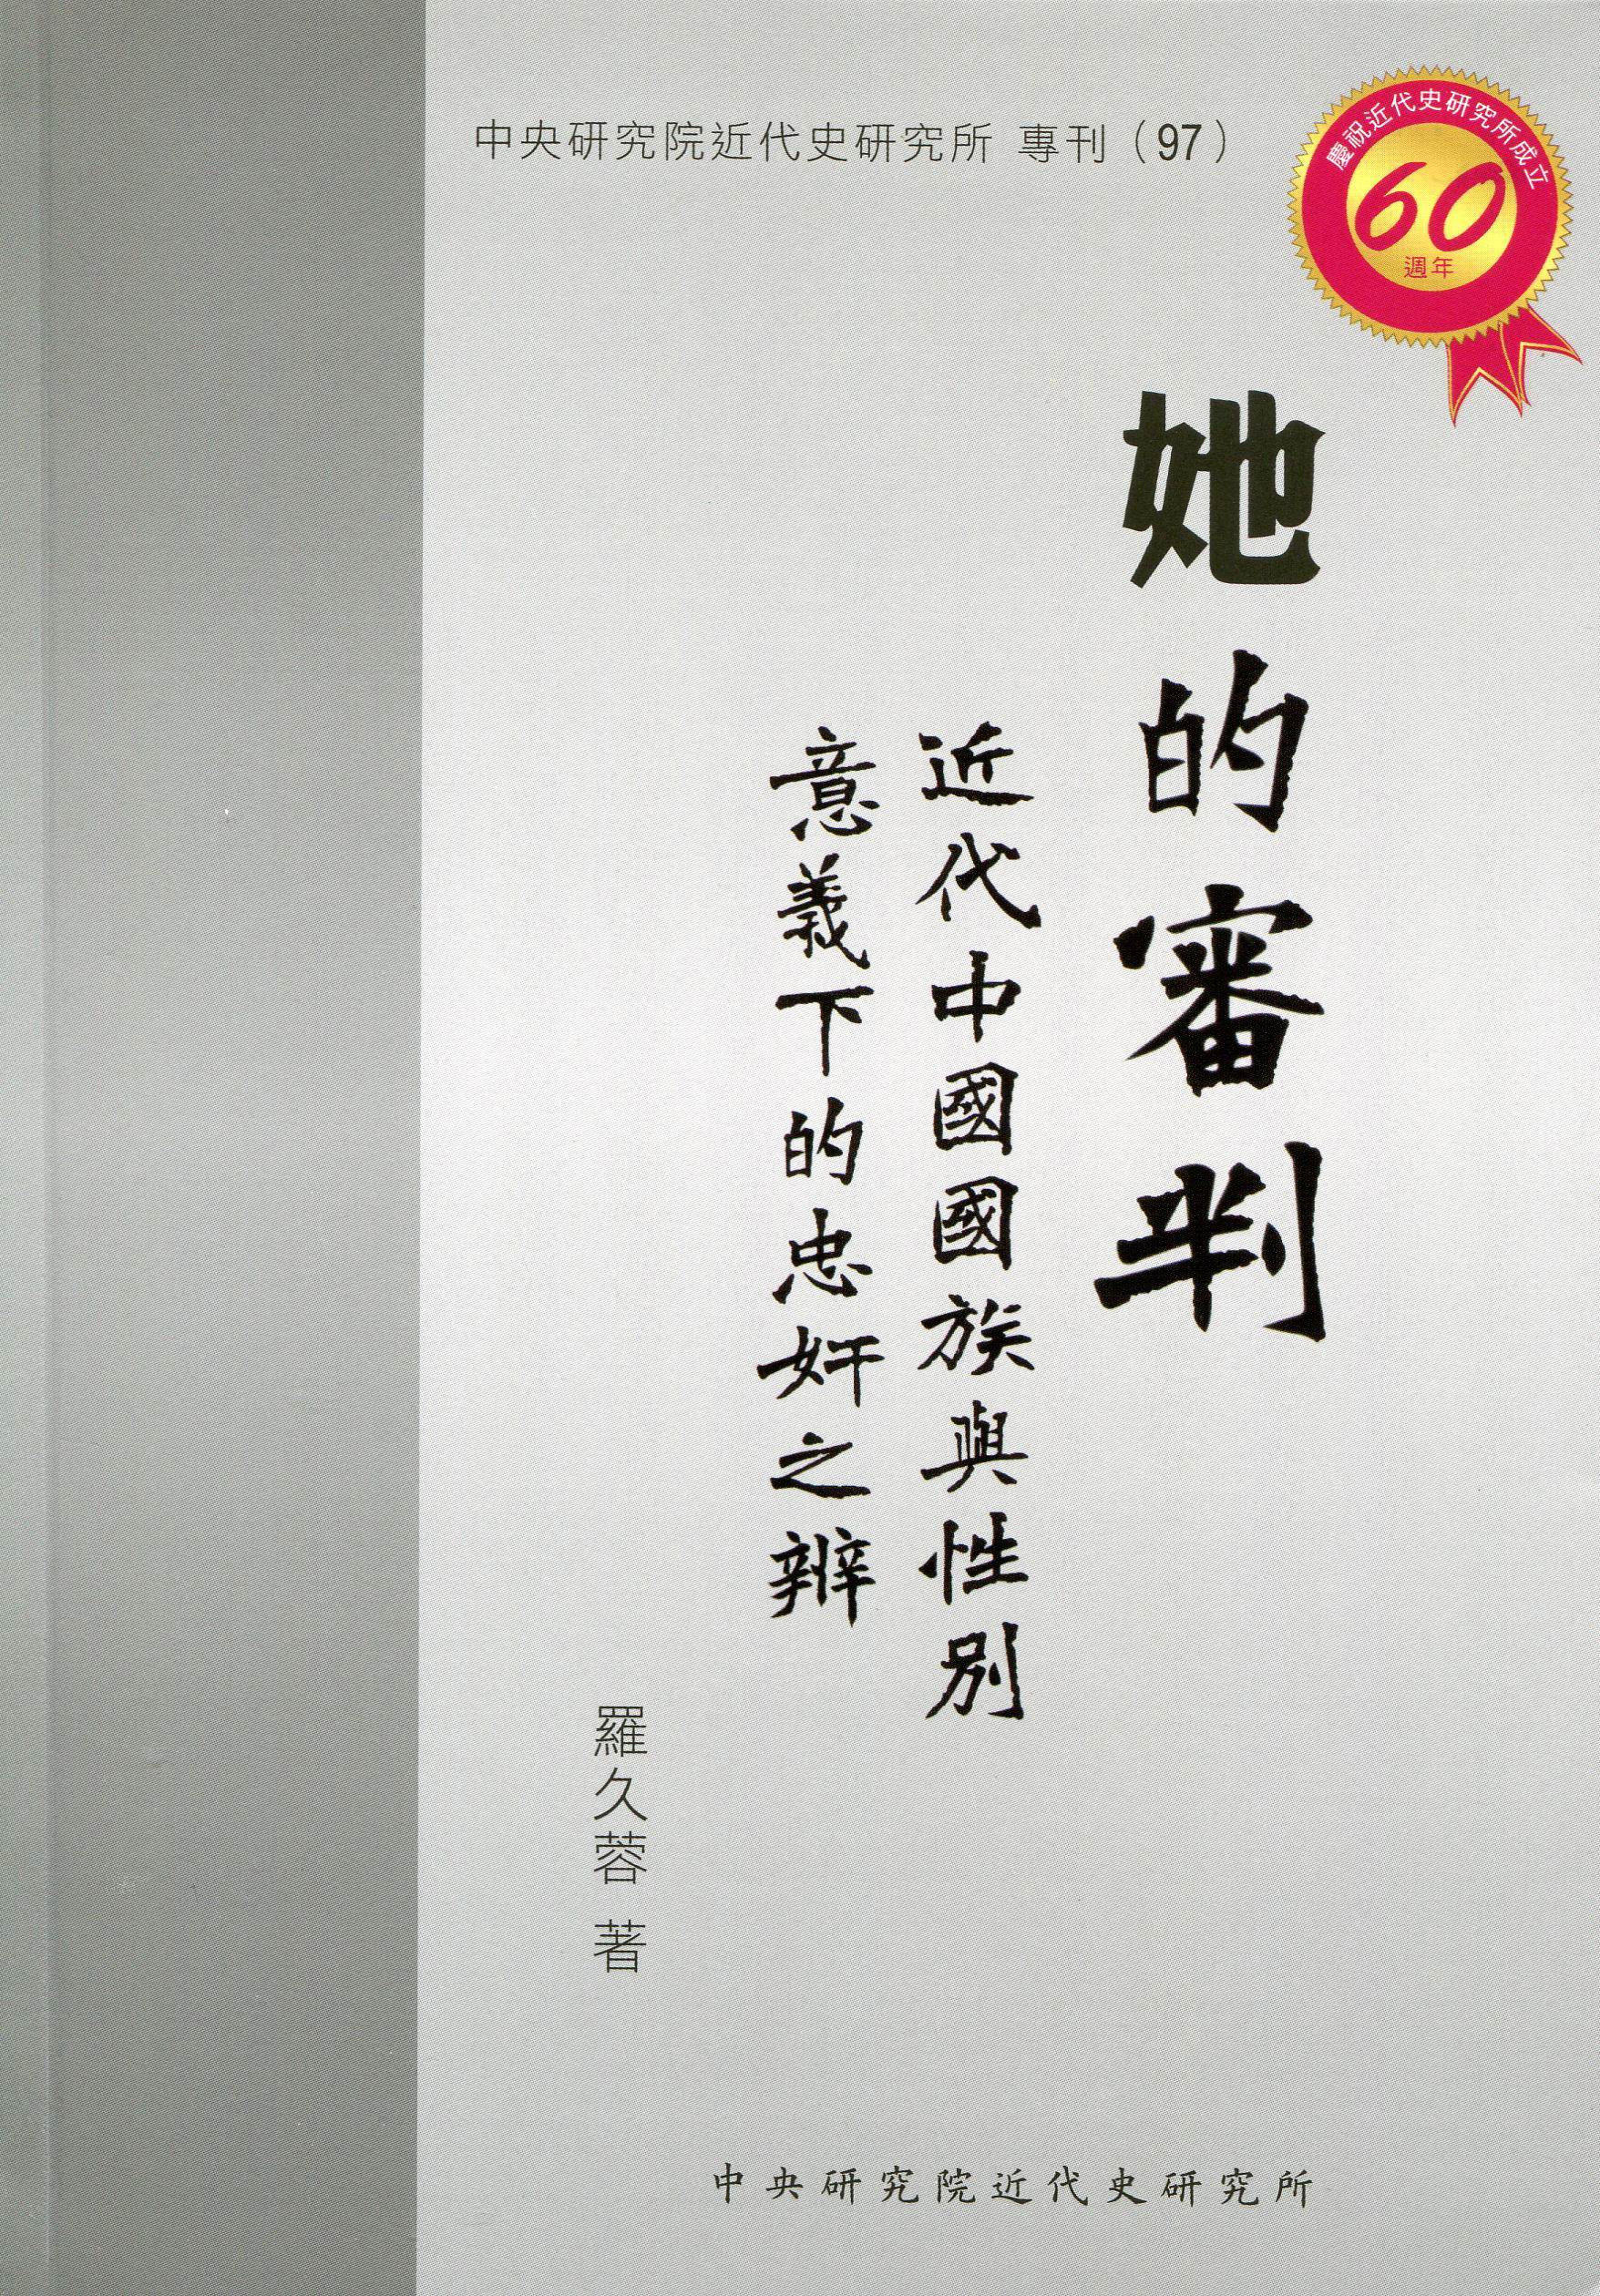 中央研究院近代史研究所 專刊（97）
慶祝近代史研究所成立
60
週年
她的審判
近代中國國族與性別
意義下的忠奸之辨
羅久蓉 著
中央研究院近代史研究所